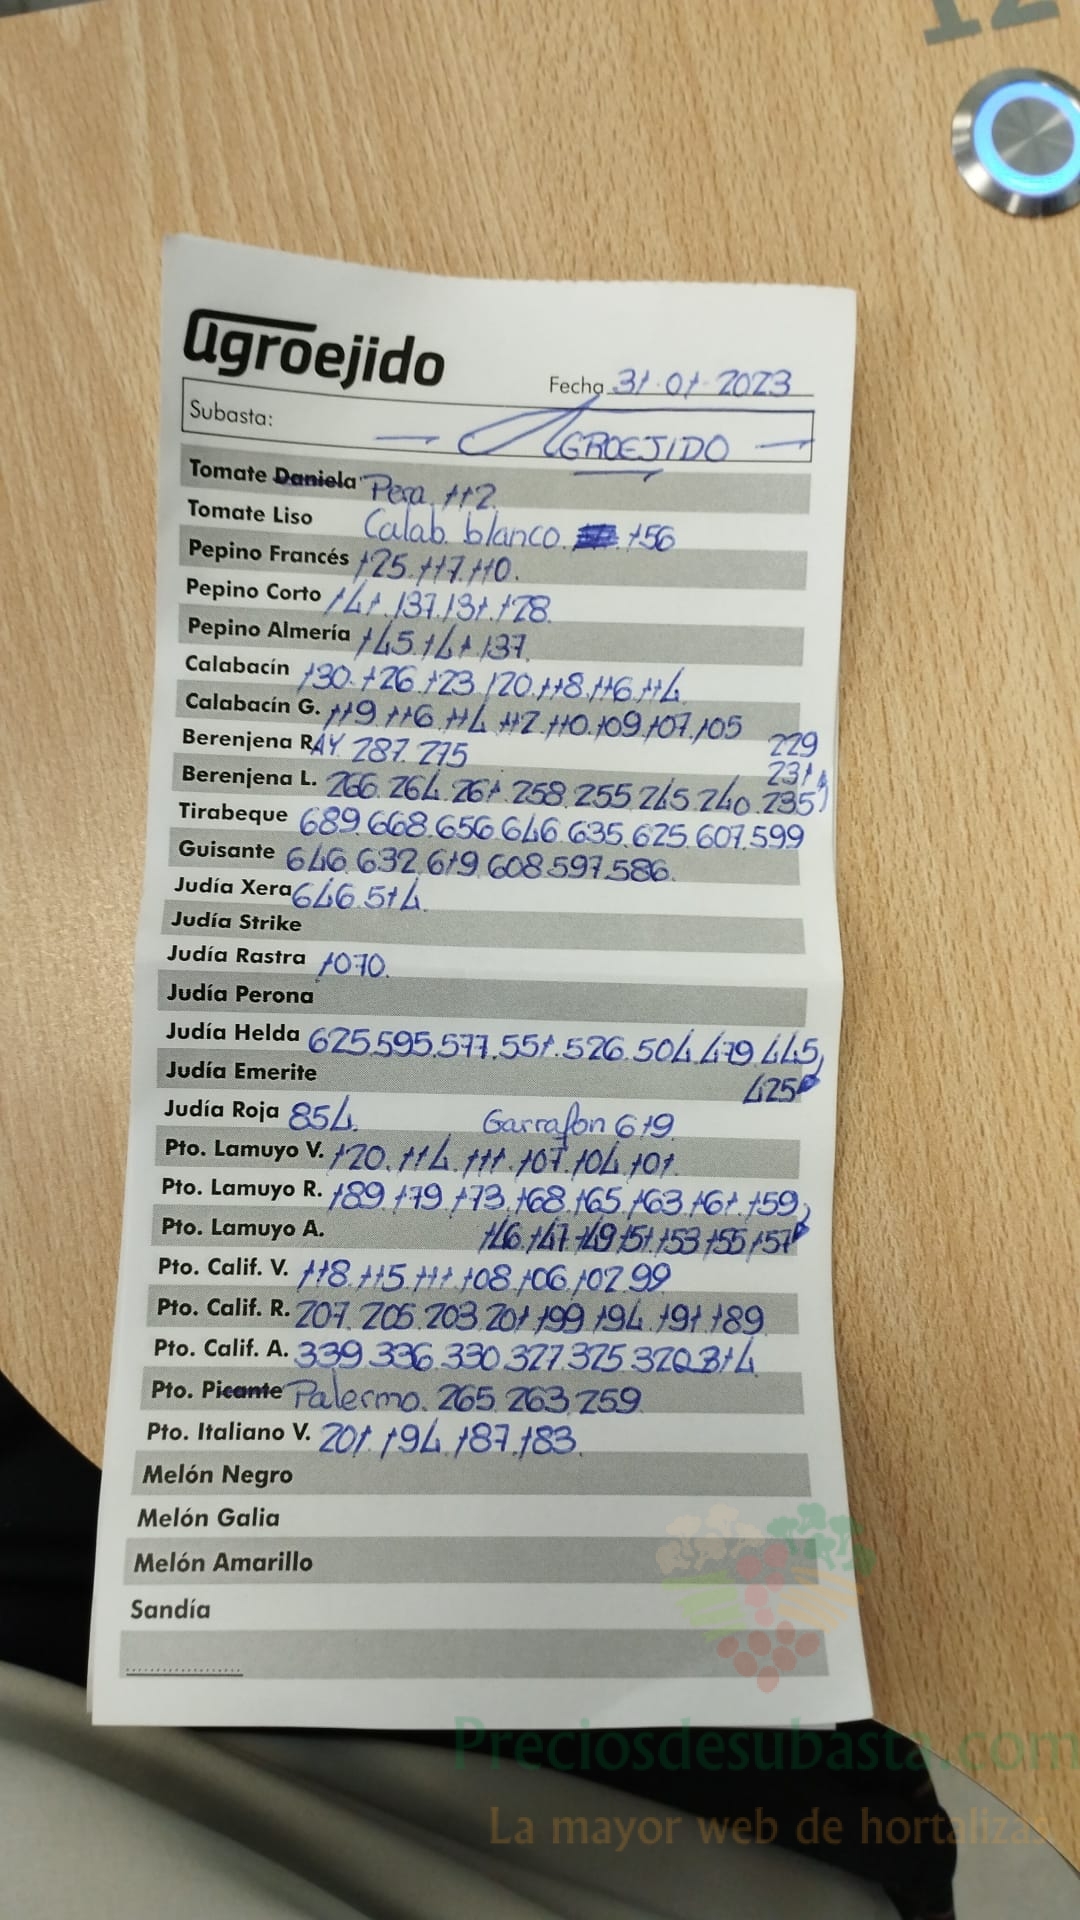 12
agroejido
Fecha 31-01-2023
Subasta: — AGROEJIDO —
Tomate Daniela Pera. 112.
Tomate Liso Calab. blanco 156
Pepino Francés 125.117.110.
Pepino Corto 141.137.131.128.
Pepino Almería 145.141.137.
Calabacín 130.126.123.120.118.116.114.
Calabacín G. 119.116.114.112.110.109.107.105
Berenjena RAY. 287.275 229
231,
Berenjena L. 266.264.261.258.255.245.240.235)
Tirabeque 689.668.656.646.635.625.607.599
Guisante 646.632.619.608.597.586.
Judía Xera 646.514.
Judía Strike
Judía Rastra 1070.
Judía Perona
Judía Helda 625.595.577.551.526.504.479.445,
Judía Emerite 425
Judía Roja 854. Garrafon 619.
Pto. Lamuyo V. 120.114.111.107.104.101.
Pto. Lamuyo R. 189.179.173.168.165.163.161.159,
Pto. Lamuyo A. 146.147.149.151.153.155.157
Pto. Calif. V. 118.115.111.108.106.102.99
Pto. Calif. R. 207.205.203.201.199.194.191.189
Pto. Calif. A. 339.336.330.327.325.320.314.
Pto. Picante Palermo. 265.263.259.
Pto. Italiano V. 201.194.187.183.
Melón Negro
Melón Galia
Melón Amarillo
Sandía
Preciosdesubasta.com
La mayor web de hortalizas